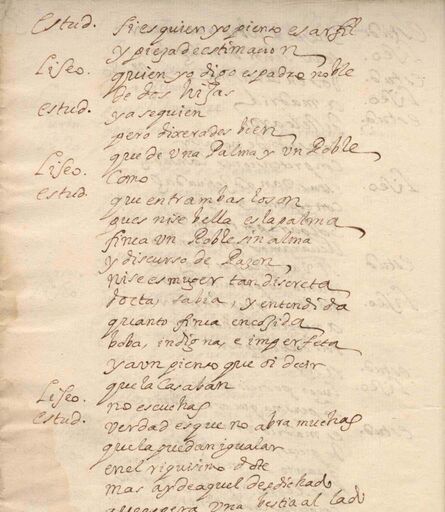 estud. si es quien yo pienso es arfil
y pieça de estimacion
Liseo. quien yo digo es padre noble
de dos hijas
estud. ya se quien
pero dixerades bien
que de una Palma y un Roble
Liseo. Como
estud. que entrambas lo son
pues nise bella es la palma
finea un Roble sin alma
y discurso de Razon
nise es muger tan discreta
docta, sabia, y entendida
quanto finea encojida
boba, indigna, e imperfeta
y aun pienso que oi decir
que la Casaban
Liseo. no escuchas
estud. verdad es que no abra muchas
que la puedan igualar
en el riquisimo dote
mas ay de aquel desdichado
que espera una bestia al lado